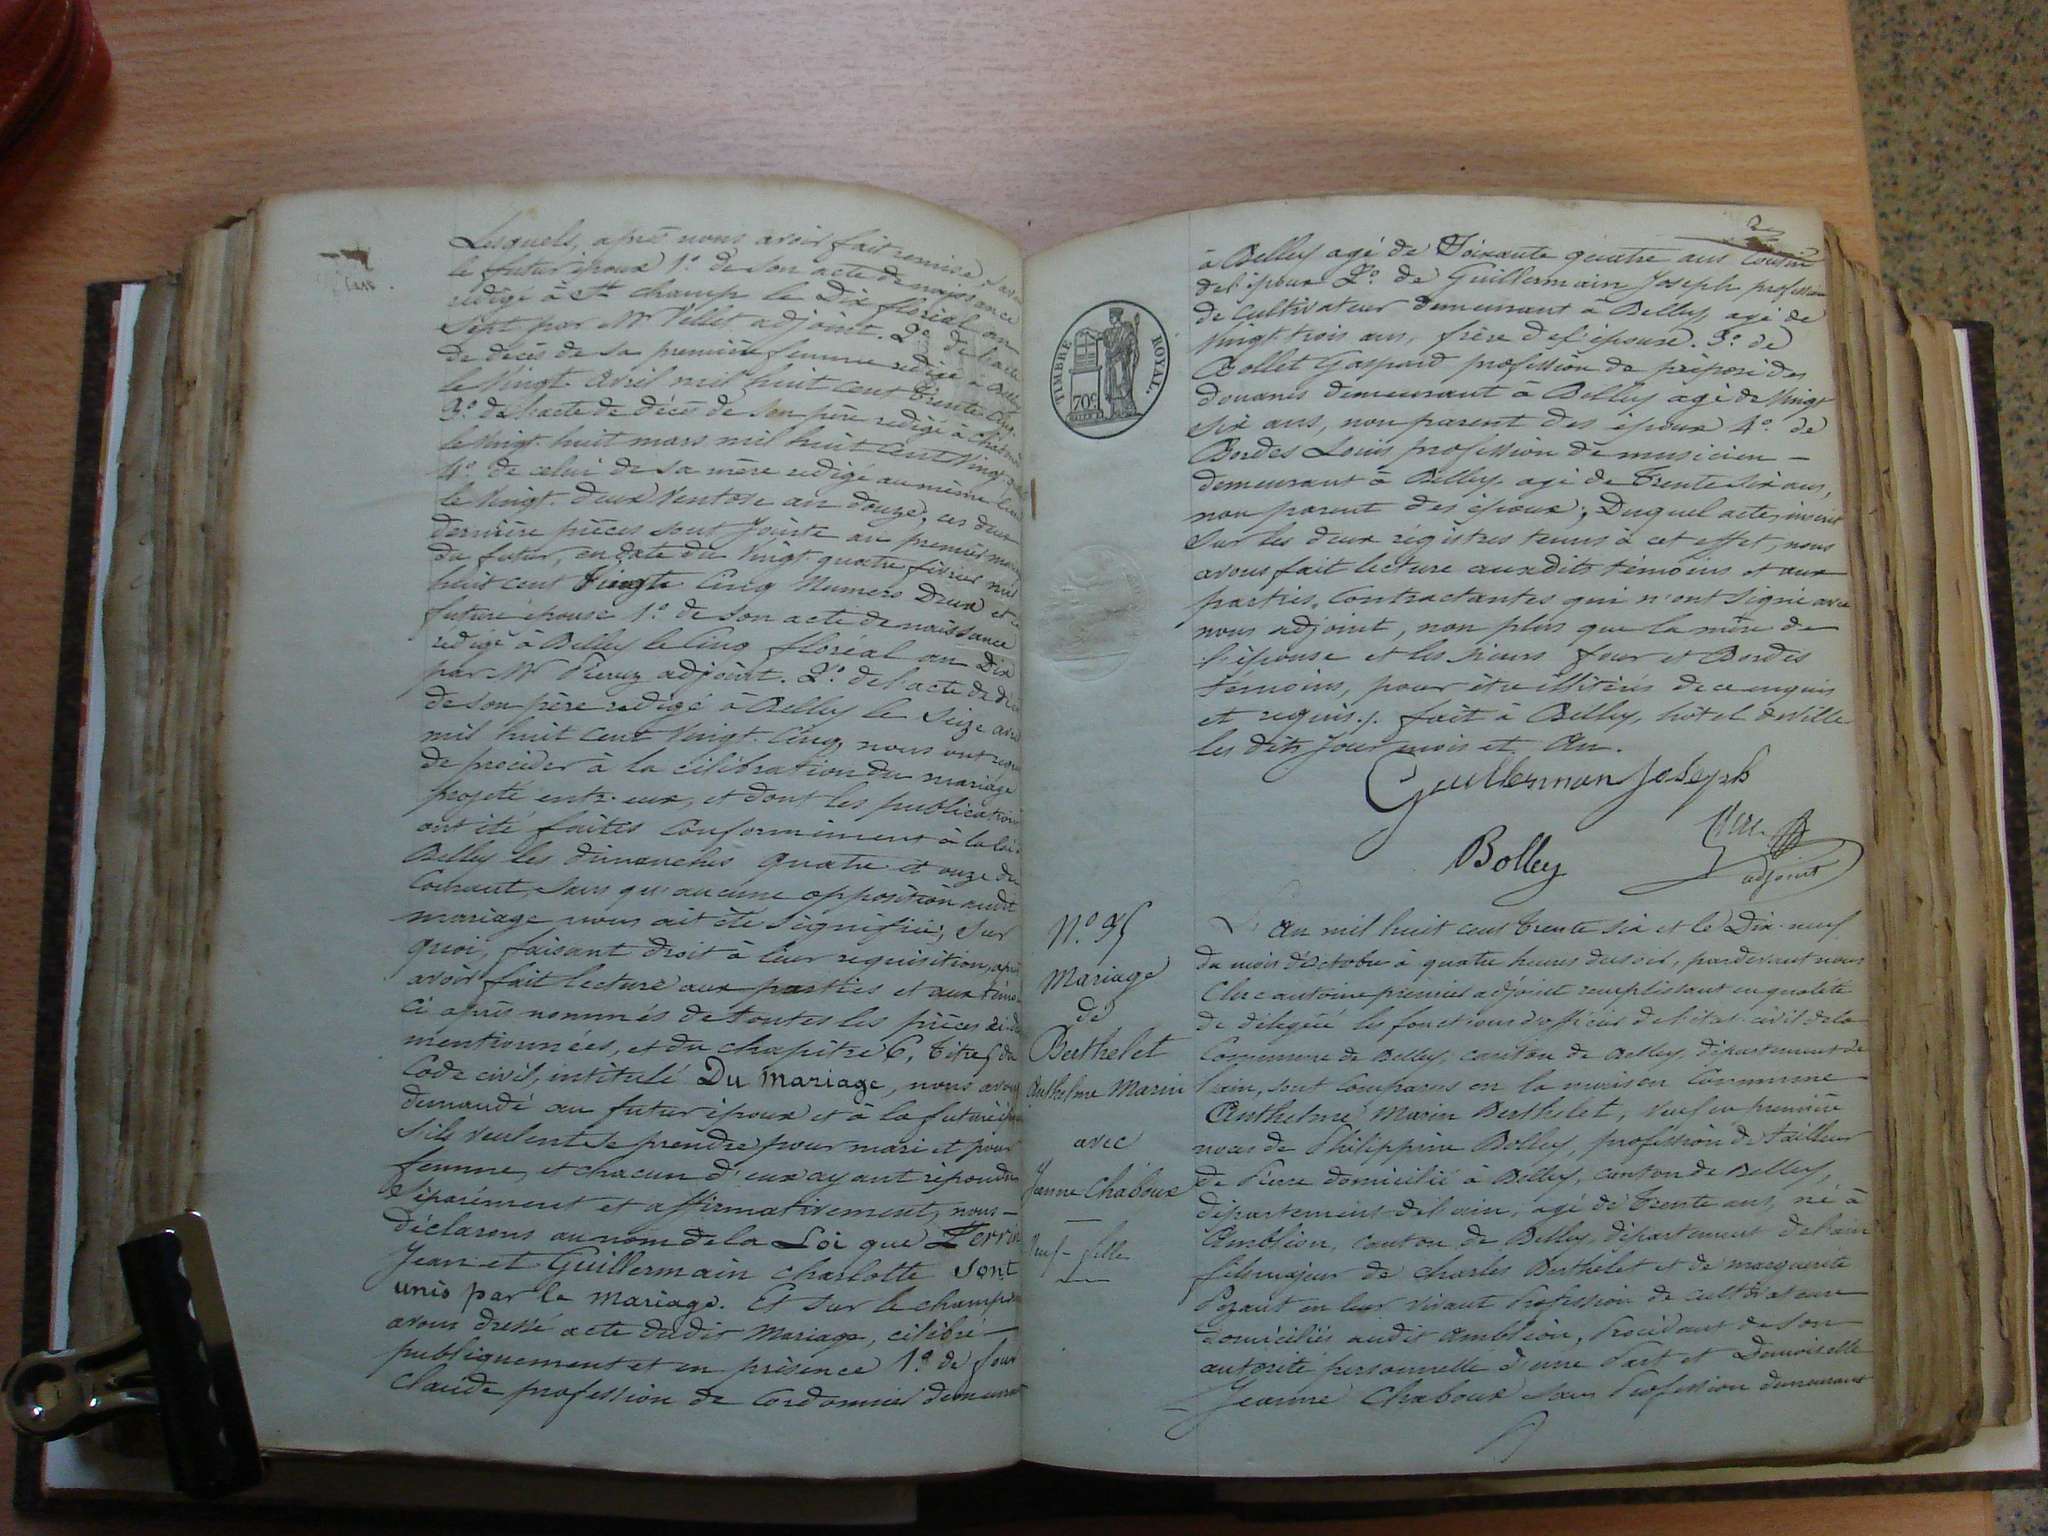 Lesquels, après nous avoir fait remise, savoir
le futur époux 1º. de son acte de naissance
redigé à St. champ le Dix floréal an
Sept par Mr Villet adjoint. 2º de l'acte
de decès de sa première femme redigé à Belley
le Vingt avril mil huit cent Trente Cinq.
3º. de l'acte de décès de son père redigé à
le Vingt huit mars mil huit Cent Vingt
4º. de celui de sa mère redigé au même lieu
le Vingt deux Ventose an douze; ces deux
dernière pièces sont Jointe au premier
du futur, en date du Vingt quatre fevrier mil
huit cent Vingt Cinq Numero Deux et la
future épouse 1º. de son acte de naissance
redigé à Belley le Cinq floréal an Dix
par Mr adjoint. 2º. de l'acte de décès
de son père redigé à Belley le Seize
mil huit Cent Vingt Cinq, nous ont requis
de procéder à la célébration du mariage
projeté entr-eux, et dont les publications
ont été faites Conformement à la loi à
Belley les dimanches quatre et onze du
Courant, sans qu'aucune opposition audit
mariage nous ait été signifiée; Sur
quoi, faisant droit à leur requisition, après
avoir fait lecture aux parties et aux témoins
ci après nommés de toutes les pièces ci-dessus
mentionnées, et du chapitre 6, titre 5 du
Code civil, intitulé Du Mariage, nous avons
demandé au futur époux et à la future épouse
s'ils veulent se prendre pour mari et pour
femme, et chacun d'eux ayant répondu
Séparément et affirmativement, nous —
déclarons au nom de la Loi que
Jean et Guillermain charlotte sont
unis par le Mariage. Et sur le champ
avons dressé acte dudit Mariage, célébré
publiquement et en présence 1º. de four
Claude profession de Cordonnier demeurant
à Belley agé de Soixante quatre ans Cousin
de l'époux 2º. de Guillermain Joseph profession
de Cultivateur demeurant à Belley, agé de
Vingt trois ans, frère de l'épouse. 3º. de
Bollet Gaspard profession de préposé des
douanes demeurant à Belley agé de Vingt
six ans, non parent des époux 4º. de
Bordes Louis profession de musicien —
demeurant à Belley, agé de Trente Six ans,
non parent des époux; Duquel acte, inscrit
Sur les deux régistres tenus à cet effet, nous
avons fait lecture auxdits témoins et aux
parties Contractantes qui n'ont signé avec
nous adjoint, non plus que la mère de
l'épouse et les sieurs four et Bordes
témoins, pour être illitérés de ce enquis
et requis ./. fait à Belley, hôtel de Ville
les dits Jour mois et An.
Guillerman Joseph
Bolley
adjoint
TIMBRE ROYAL.
70c.
Nº. 95
Mariage
de
Berthelet
Anthelme Marin
avec
Jeanne Chaboux
Veuf - fille
L'An mil huit cent trente six et le Dix-neuf
du mois d'Octobre à quatre heures du soir, pardevant nous
Clerc antoine premier adjoint remplissant en qualité
de délégué les fonctions d'officier de l'état-civil de la
Commune de Belley, canton de Belley, département de
l'ain, sont Comparus en la maison Commune
Anthelme Marin Berthelet, veuf en première
noces de Philippine Bolley, profession de tailleur
de Pierre domicilié à Belley, canton de Belley,
département de l'ain, agé de Trente ans, né à
Amblion, canton de Belley, département de l'ain
fils majeur de Charles Berthelet et de marguerite
Pezant en leur vivant Profession de cultivateurs
domiciliés audit Amblion, Procédant de Son
autorité personnelle d'une Part et Demoiselle
Jeanne Chaboux sans Profession demeurant